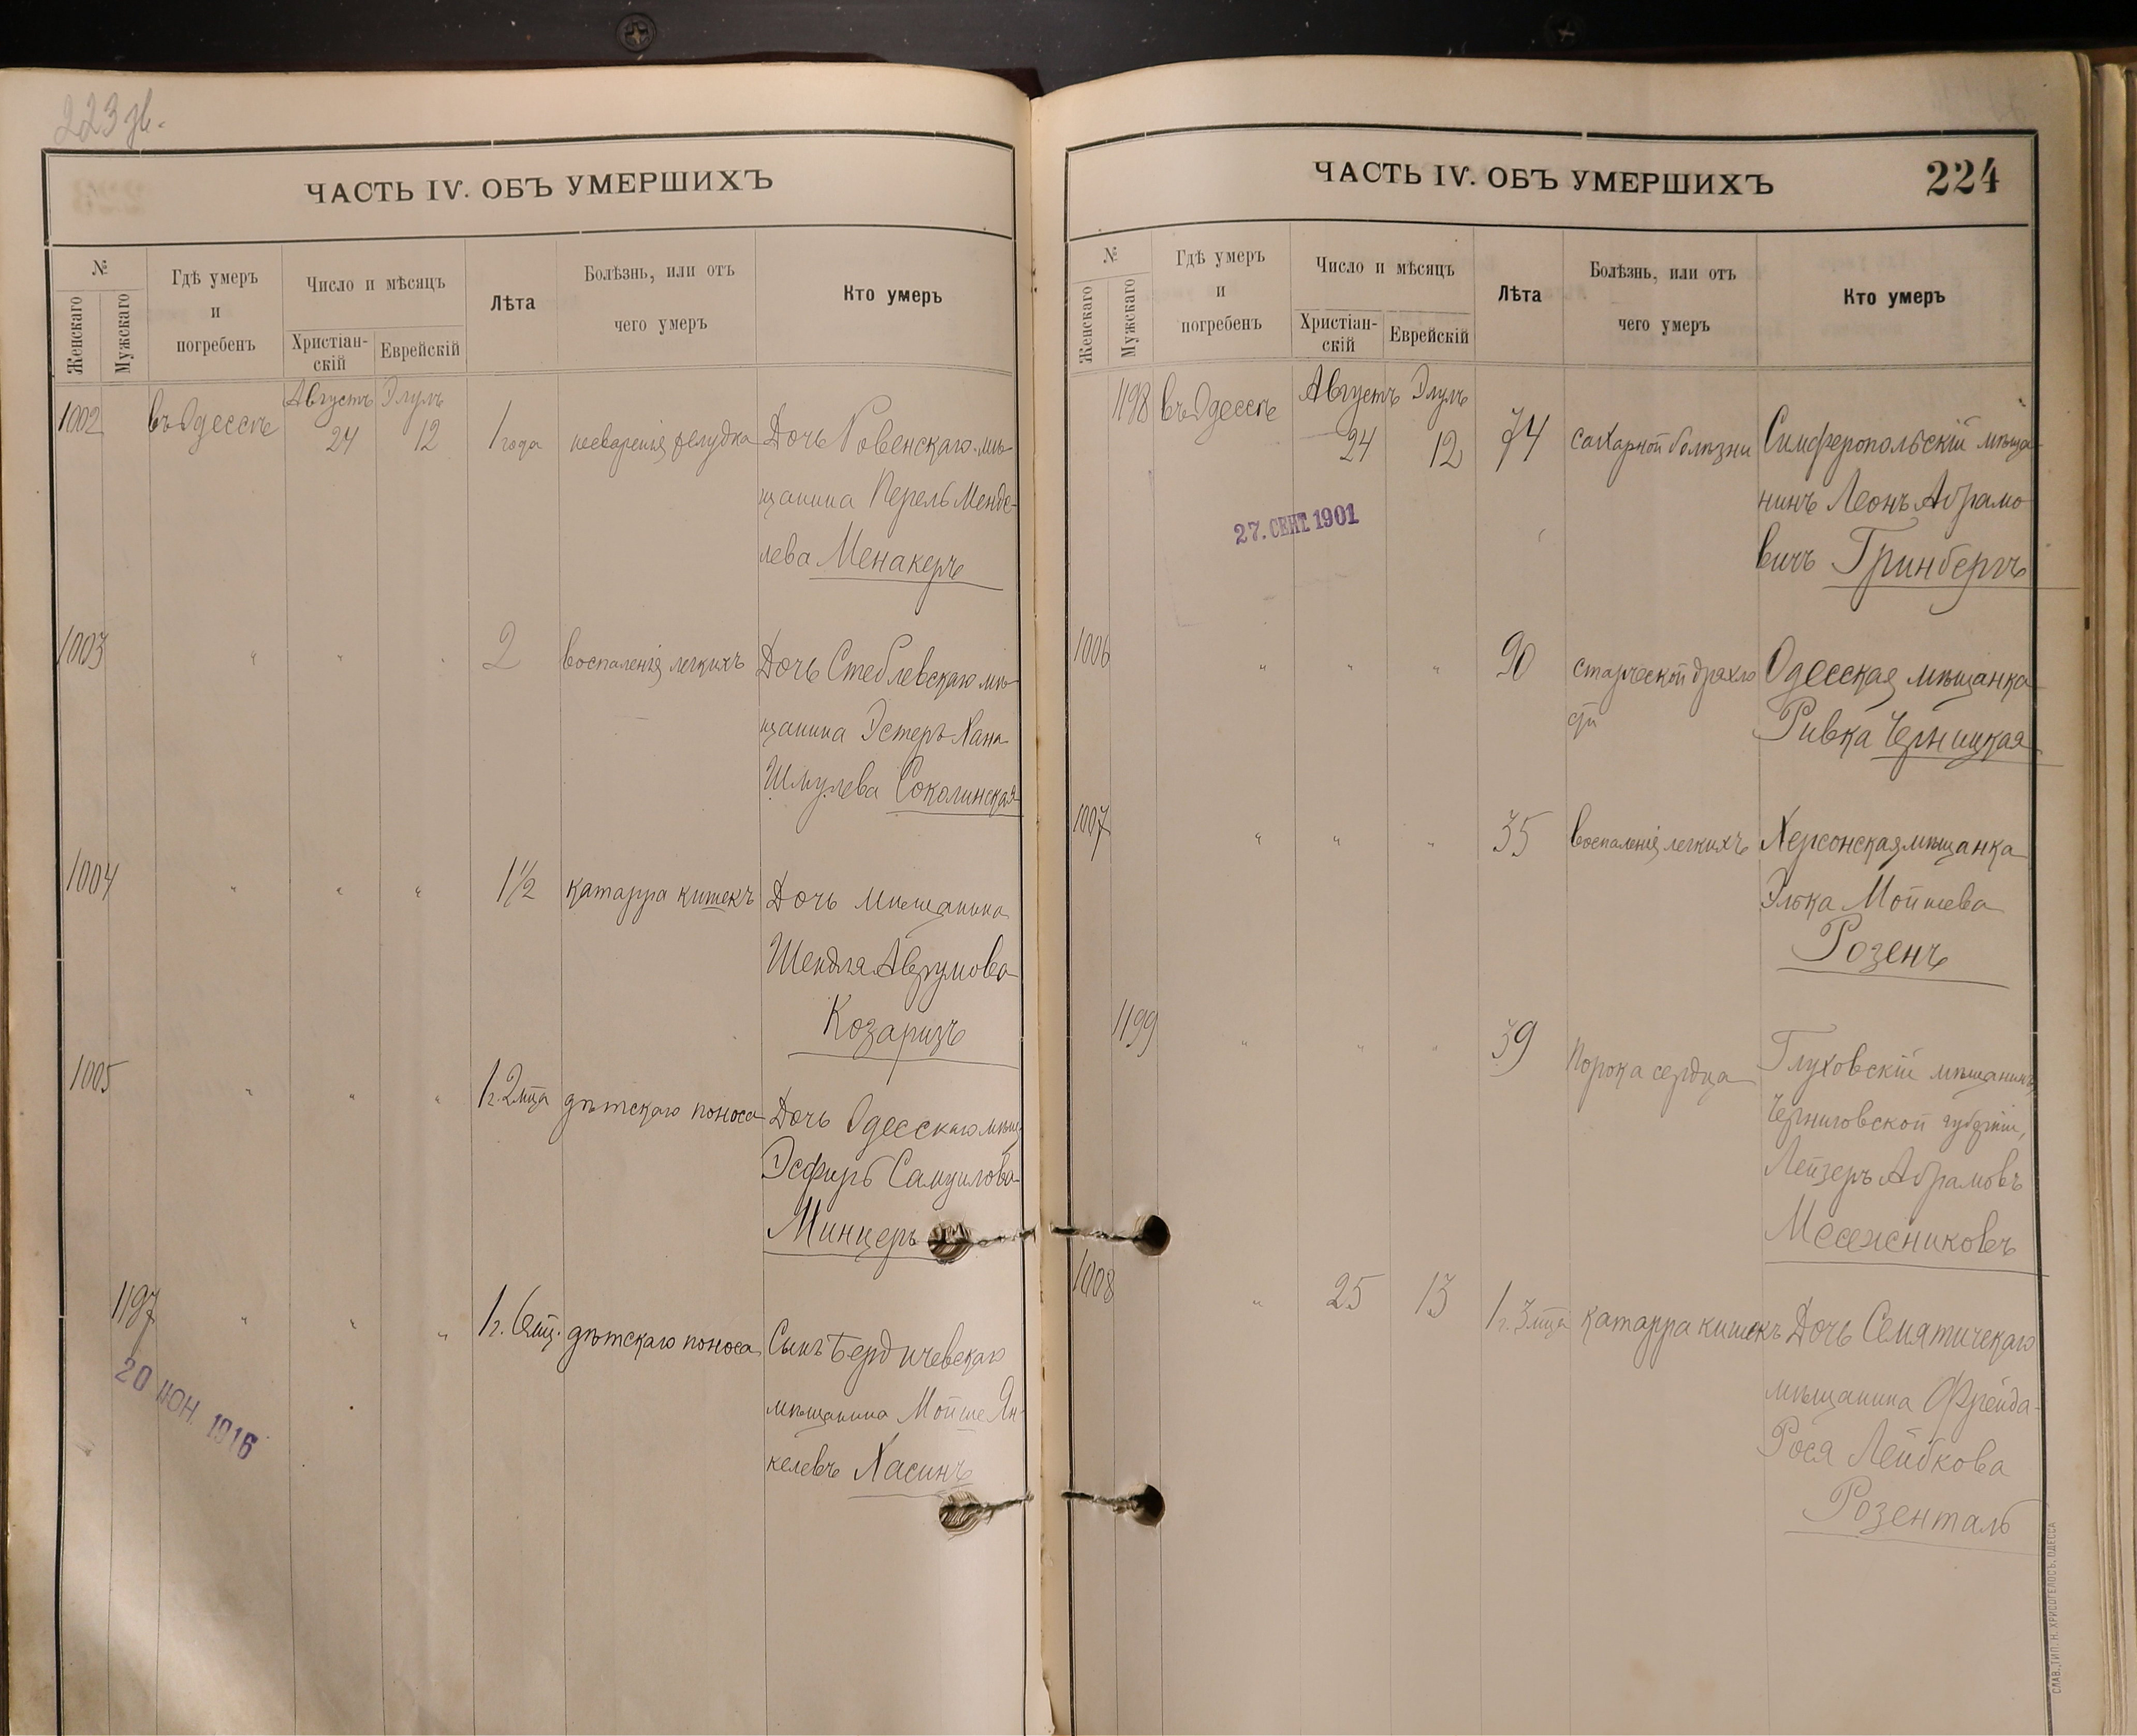 223 зв.
ЧАСТЬ IV. ОБЪ УМЕРШИХЪ
№
Женскаго
Мужскаго
Гдѣ умеръ
и
погребенъ
Число и мѣсяцъ
Христіан-
скій
Еврейскій
Лѣта
Болѣзнь, или отъ
чего умеръ
Кто умеръ
1002
въ Одессѣ
Августъ
24
Элулъ
12
1 года
несваренія желудка
Дочь Ровенскаго мѣ-
щанина Перель Менде-
лева Менакеръ
1003
" " "
2
воспаленія легкихъ
Дочь Стеблевскаго мѣ-
щанина Эстеръ Хана
Шмулева Соколинская
1004
" " "
1½
катарра кишекъ
Дочь мѣщанина
Шендля Аврумова
Козаризъ
1005
" " "
1 г. 2 мца
дѣтскаго поноса
Дочь Одесскаго мѣщ.
Эсфирь Самуилова
Минцеръ
1197
" " "
1 г. 6 мц.
дѣтскаго поноса
Сынъ Бердичевскаго
мѣщанина Мойше Ян-
келевъ Хасинъ
20 ІЮН. 1916
ЧАСТЬ IV. ОБЪ УМЕРШИХЪ
224
№
Женскаго
Мужскаго
Гдѣ умеръ
и
погребенъ
Число и мѣсяцъ
Христіан-
скій
Еврейскій
Лѣта
Болѣзнь, или отъ
чего умеръ
Кто умеръ
1198
въ Одессѣ
Августъ
24
Элулъ
12
74
сахарной болѣзни
Симферопольскій мѣща-
нинъ Леонъ Абрамо
вичъ Гринбергъ
27. СЕНТ. 1901
1006
" " "
90
старческой дряхло
сти
Одесская мѣщанка
Ривка Черницкая
1007
" " "
35
воспаленія легкихъ
Херсонская мѣщанка
Элька Мойшева
Розенъ
1199
" " "
39
Порока сердца
Глуховскій мѣщанинъ,
Черниговской губерніи,
Лейзеръ Абрамовъ
1008
"
25
13
1 г. 3 мца
катарра кишекъ
Дочь Семятичскаго
мѣщанина Фрейда-
Рося Лейбкова
Розенталь
СЛАВ. ТИП. Н. ХРИСОГЕЛОСЪ. ОДЕССА